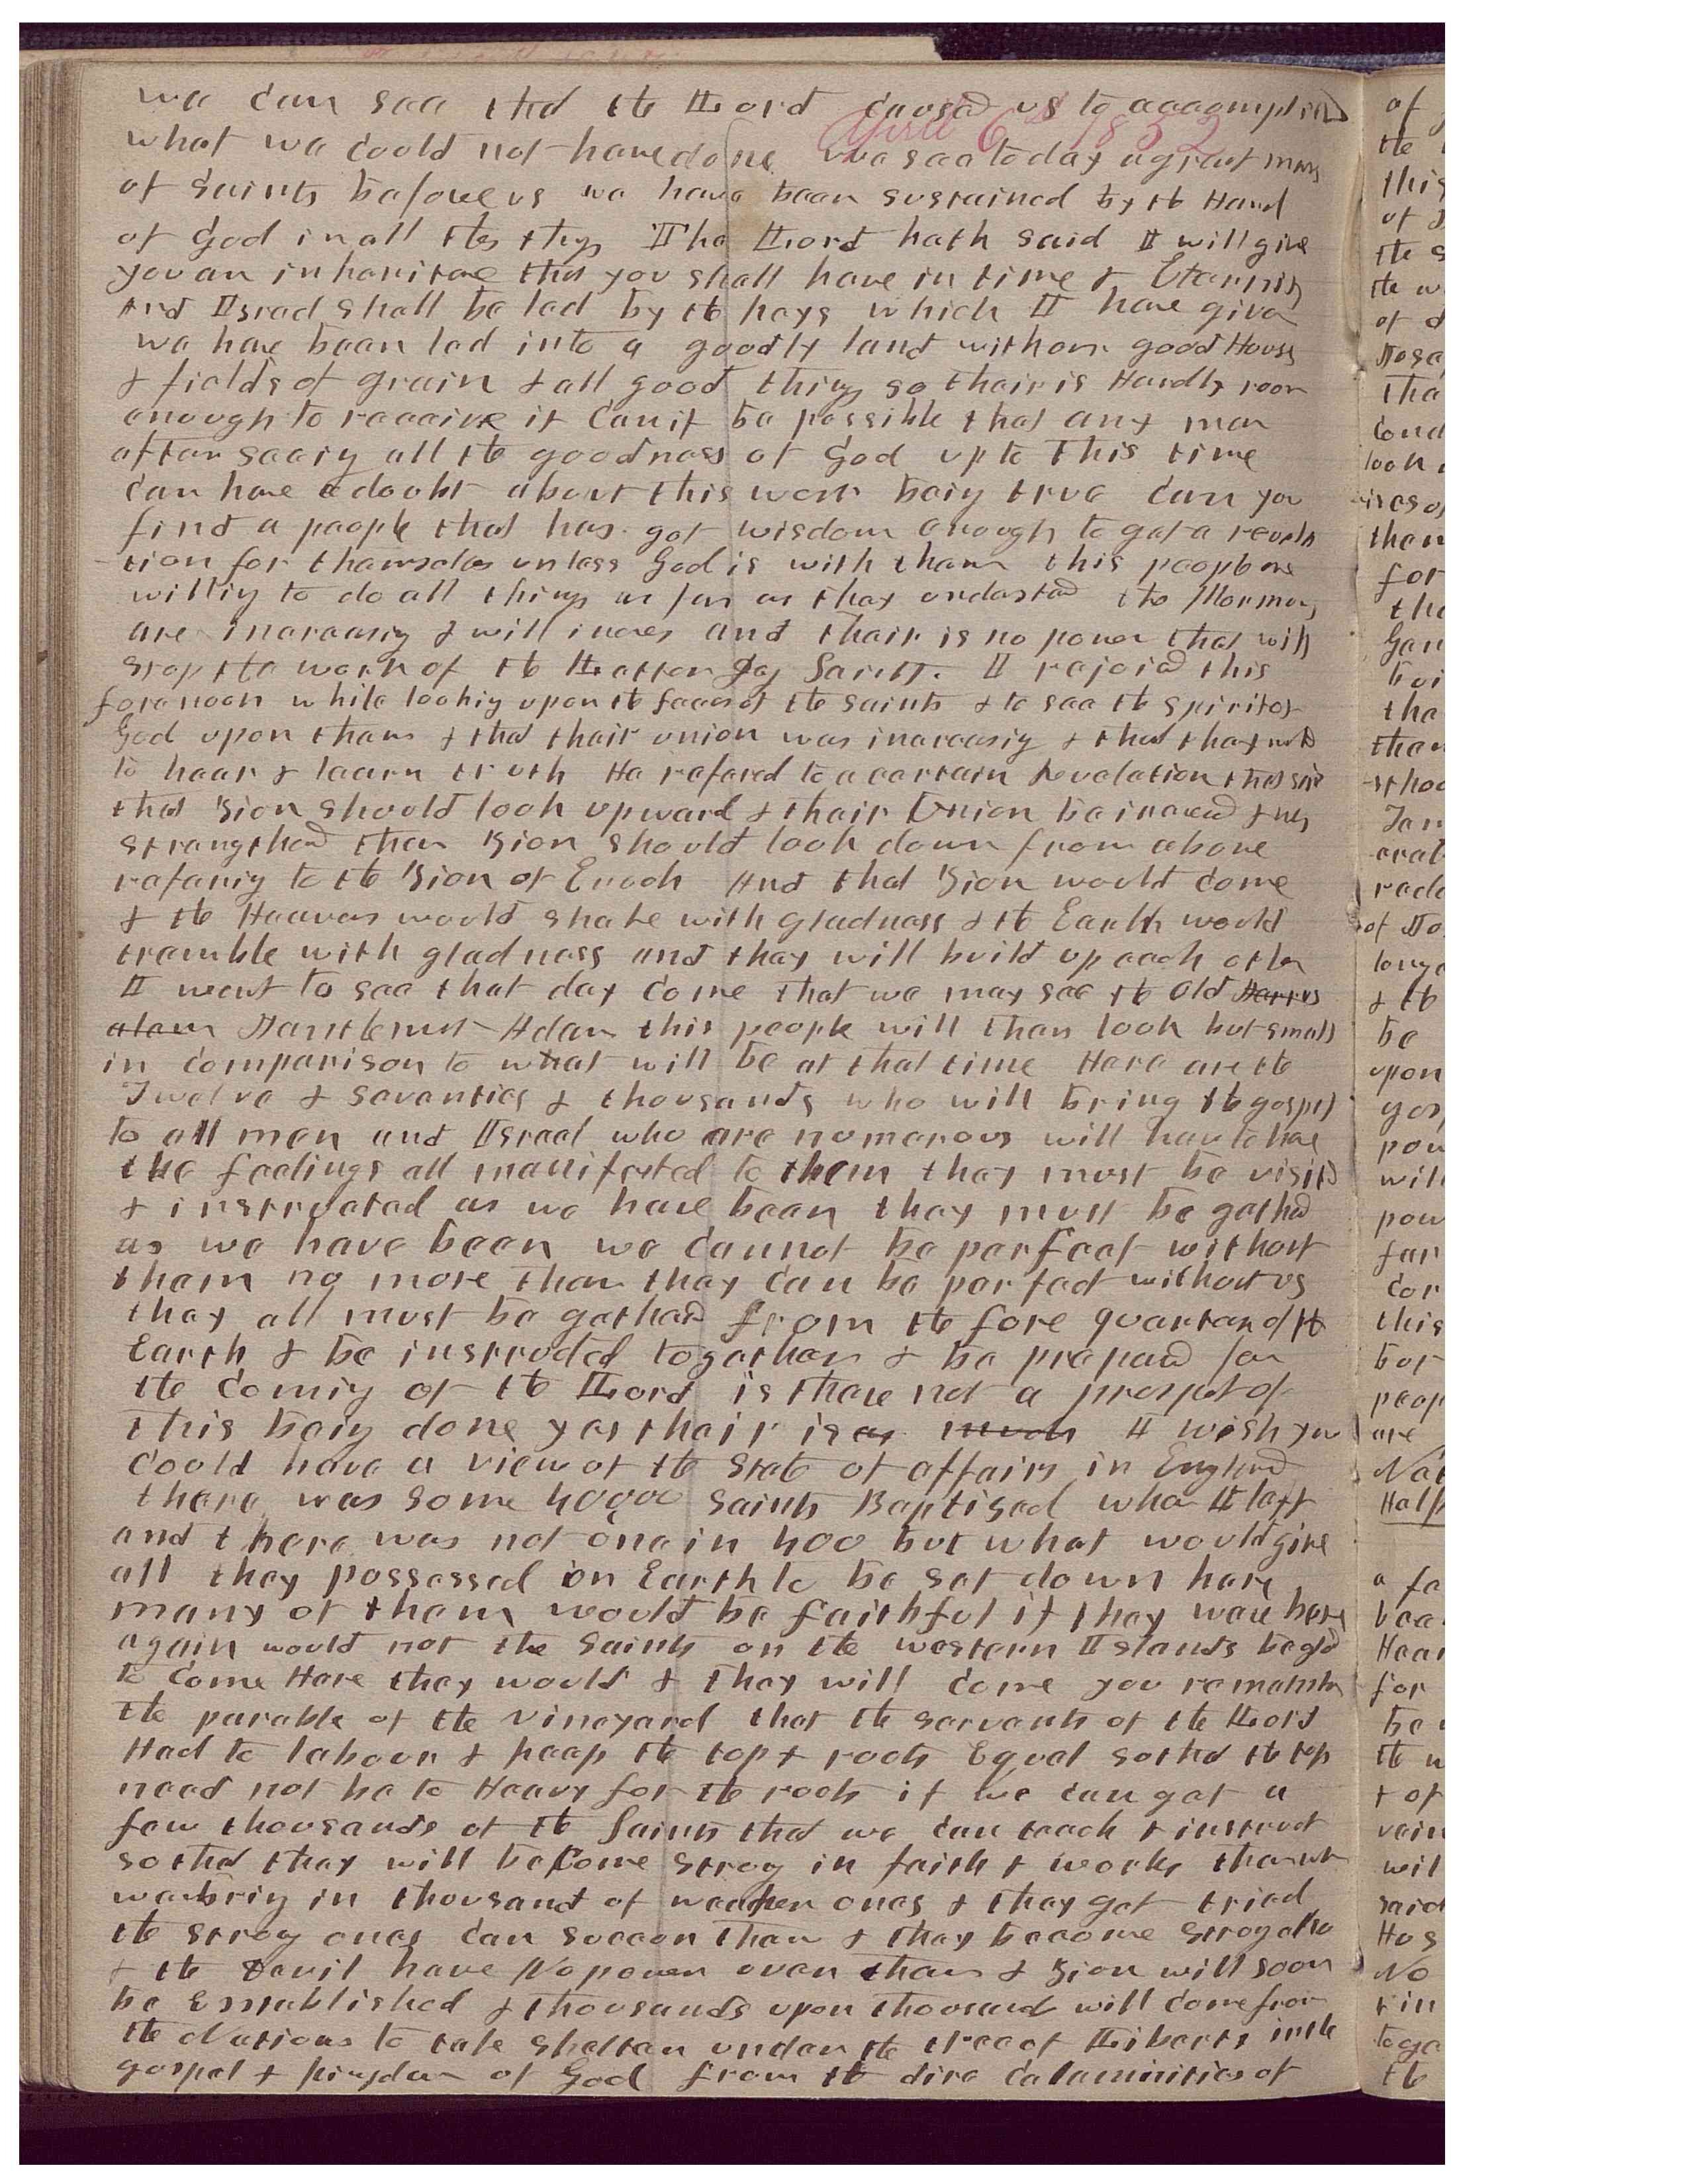 we can see that the Lord caused us to accomplish
April 6th 1852
what we could not have done we see today a great mass
of Saints before us we have been sustained by the Hand
of God in all these things The Lord hath said I will give
you an inheritance that you shall have in time & Eternity
And Israel shall be led by the keys which I have given
we have been led into a goodly land with our good Houses
& fields of grain & all good things so thair is Hardly room
enough to receive it Can it be possible that any man
after seeing all the goodness of God up to This time
can have a doubt about this work being true can you
find a people that has got wisdom enough to get a revela
-tion for themselves unless God is with them this people are
willing to do all things as far as they understand the Mormons
are increasing & will increas and thair is no power that will
stop the work of the Latter Day Saints. I rejoiced this
forenoon while looking upon the faces of the saints & to see the spirit of
God upon them & that thair union was increasing & that they
to hear & learn truth He refered to a certain Revelation that said
that Zion should look upward & thair Union be increased &
strengthed then Zion should look down from above
refering to the Zion of Enoch And that Zion would come
& the Heavens would shake with gladness & the Earth would
tremble with gladness and they will build up each other
I want to see that day come that we may see the old
this people will then look but small
in comparison to what will be at that time Here are the
Twelve & seventies & thousands who will bring the gospel
to all men and Israel who are numerous will have to have
the feelings all manifested to them they must be visited
& instructed as we have been they must be gathed
as we have been we cannot be perfect without
them no more than they can be perfect without us
they all must be gathed from the fore quarters of the
Earth & be instructed together & be prepared for
the coming of the Lord is there not a prospect of
This being done yes thair is as much I wish you
could have a view of the State of affairs in England
there was some 40000 Saints Baptised when I left
and there was not one in 400 but what would give
all they possessed on Earth to be set down here
many of them would be faithful if they ware here
again would not the Saints on the western Islands be glad
to come Here they would & they will come you remember
the parable of the vineyard that the servants of the Lord
Had to labour & keep the top & roots Equal so that the top
need not be to Heavy for the roots if we can get a
few thousands of the Saints that we can teach & instruct
so that they will become strong in faith & works then when
we bring in thousand of weaker ones & they get tried
the strong ones can succor them & they become strong also
& the Devil have No power over them & Zion will soon
be Esstablished & thousands upon thousands will come from
the Nations to take shelter under the tree of Liberty in the
gospel & kingdom of God from the dire calaminities of